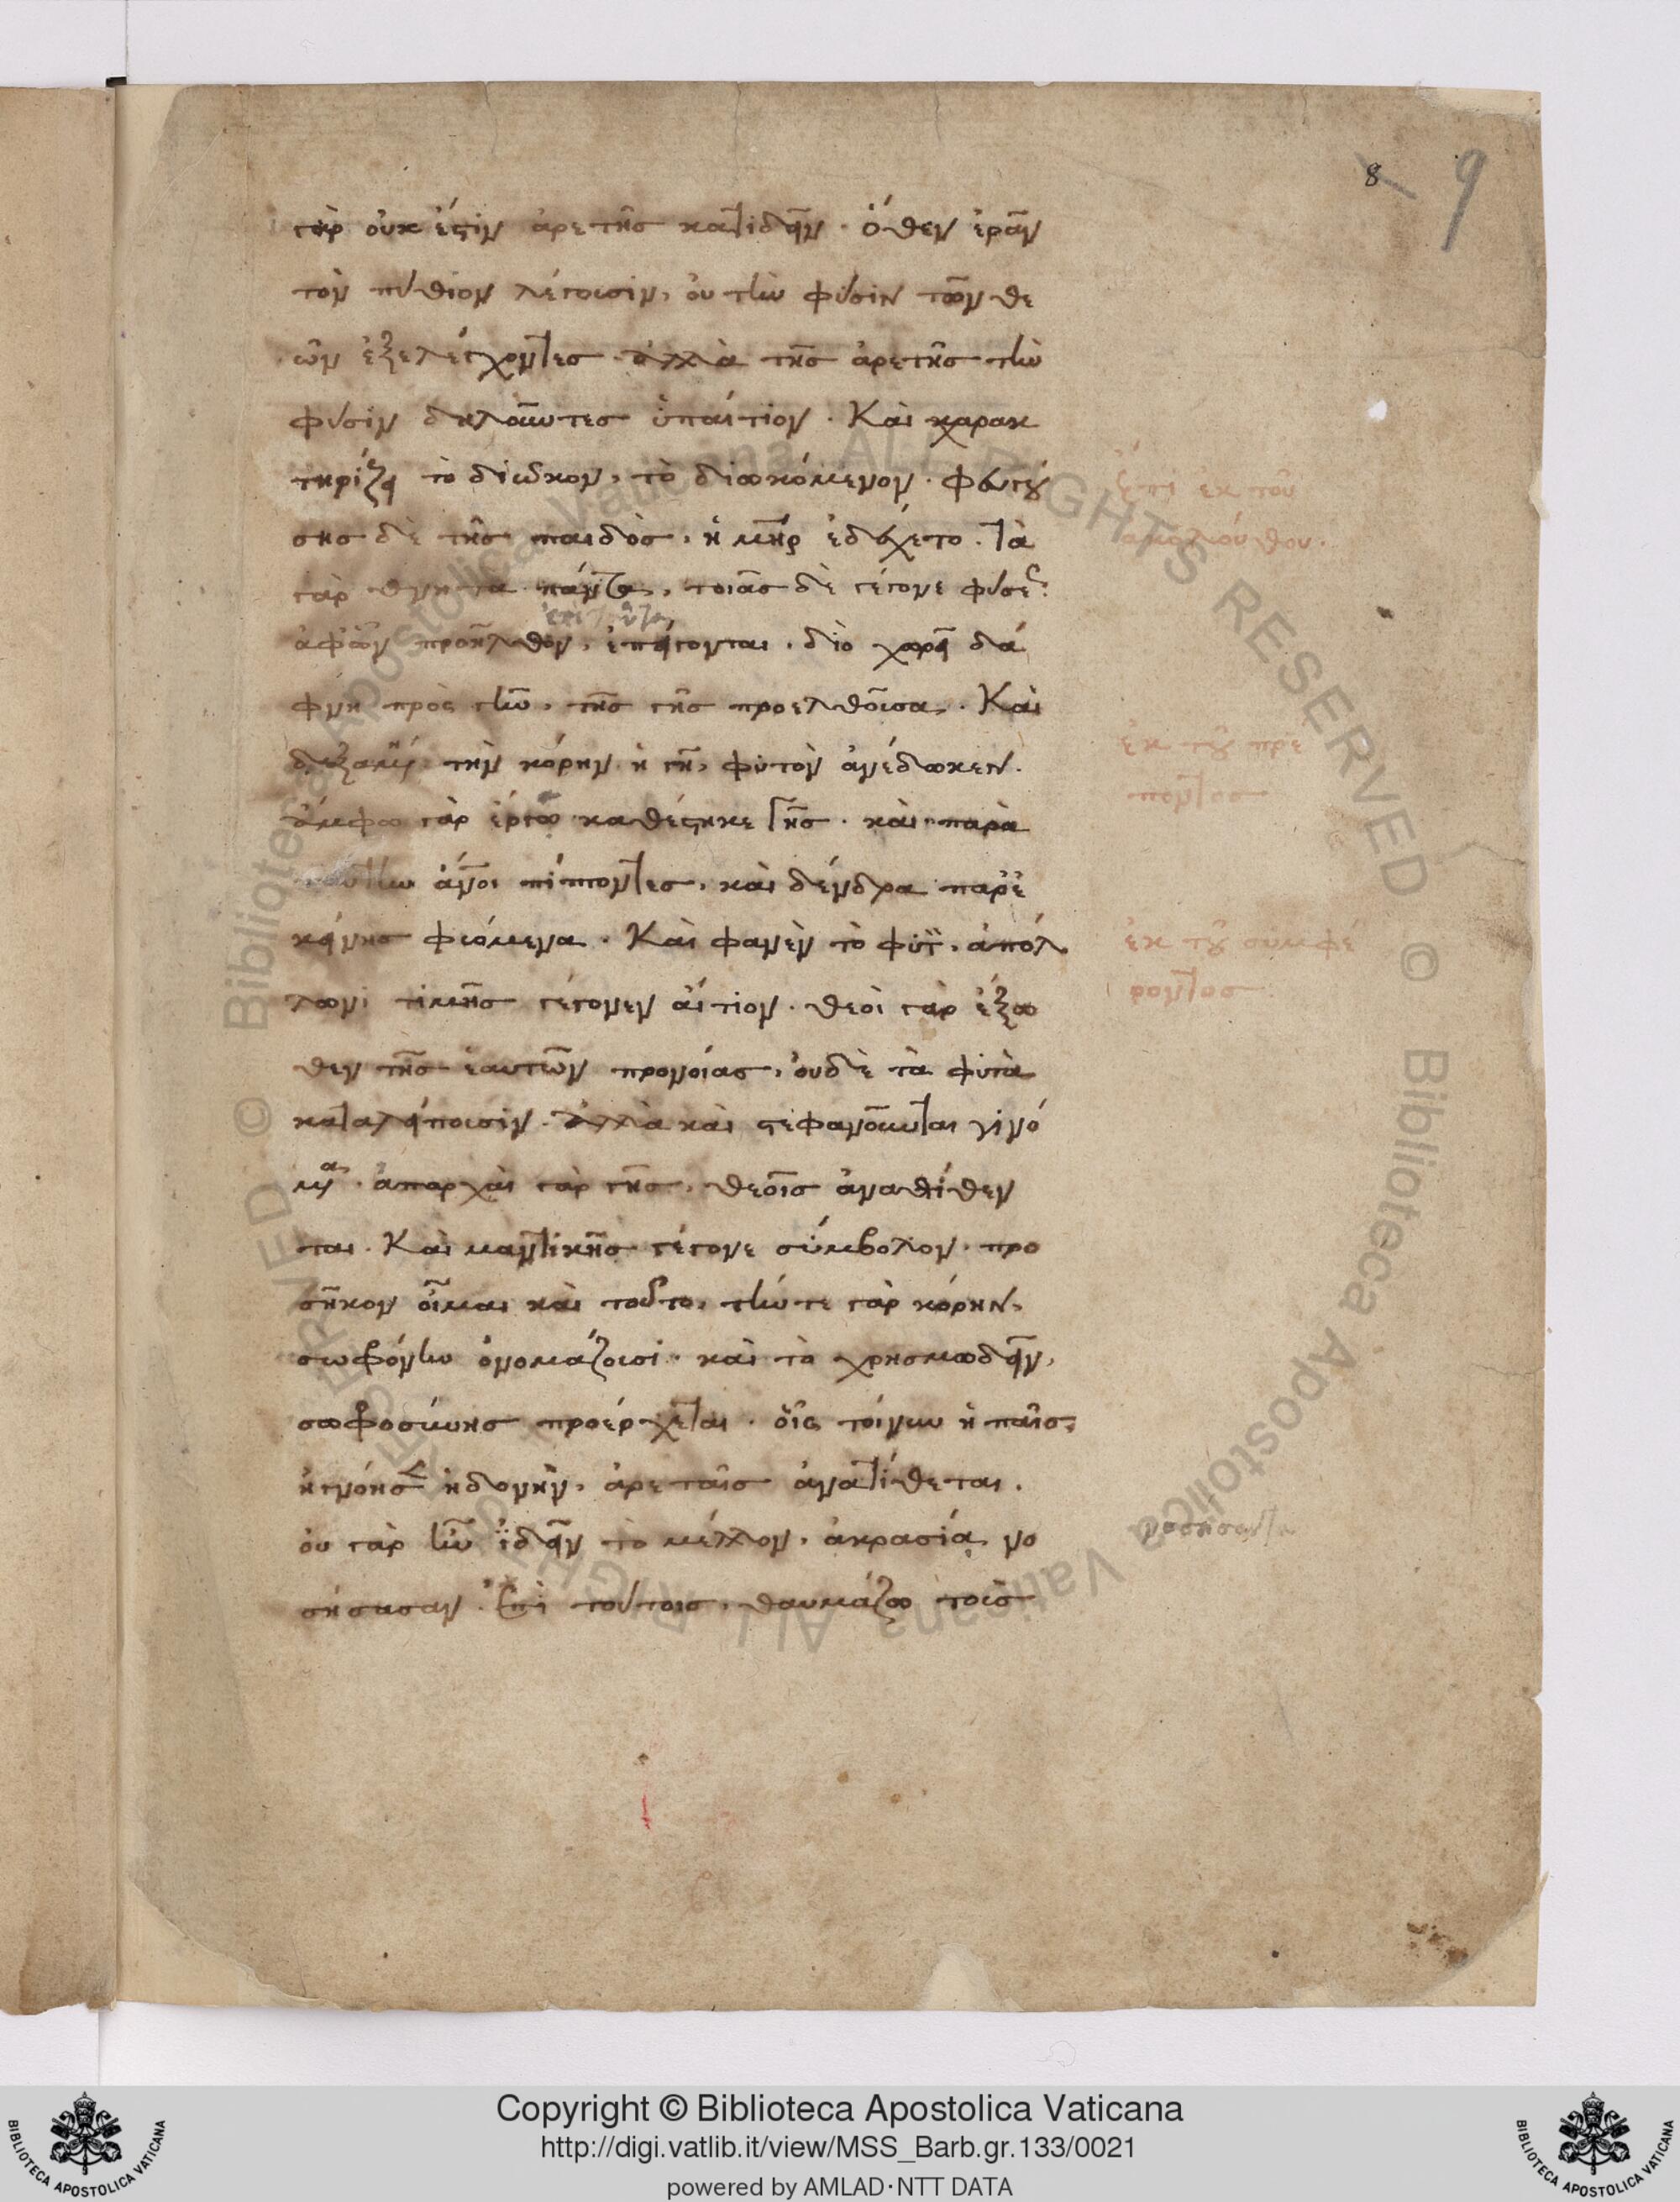 8 9
γὰρ οὐκ ἔστιν ἀρετῆς κατιδεῖν· ὅθεν ἐρᾶν
τὸν πύθιον λέγουσιν, οὐ τὴν φύσιν τῶν θε
ῶν ἐξελέγχοντες· ἀλλὰ τῆς ἀρετῆς τὴν
φύσιν δηλοῦντες ὑπαίτιον· Καὶ χαρακ
τηρίζει τὸ διῶκον, τὸ διωκόμενον· φευγού
σης δὲ τῆς παιδὸς, ἡ μηρ ἐδέχετο. τὰ
γὰρ θνητὰ πάντα, τοιαύτας δὲ γέγονε φύσε
ἀφῶν προῆλθον, ἐπείγονται· διὸ χωρεῖ δά
φνη πρὸς ἣν, τῆς γῆς προελθοῦσα· Καὶ
δεξαμέν τὴν κόρην ἡ γῆ, φυτὸν ἀνέδωκεν.
ἄμφω γὰρ ἔργα καθέστηκε γῆς· καὶ παρὰ
ταύτην ἄνοι πίπτοντες, καὶ δένδρα παρ' ἐ
κείνης φυόμενα· Καὶ φανὲν τὸ φυτ, ἀπόλ
λωνι τιμῆς γέγονεν αἴτιον· θεοὶ γὰρ ἔξω
θεν τῆς ἑαυτῶν προνοίας, οὐδὲ τὰ φυτὰ
καταλείπουσιν· ἀλλὰ καὶ στεφανοῦνται γινό
μα· ἀπαρχαὶ γὰρ γῆς, θεοῖς ἀνατίθεν
ται. Καὶ μαντικῆς γέγονε σύμβολον· προ
σῆκον οἶμαι καὶ τοῦτο, τήν τε γὰρ κόρην,
σωφρόνην ὀνομάζουσι· καὶ τὸ χρησμωδεῖν,
σωφροσύνης προέρχεται· οἷς τοίνυν ἡ παῖς,
ἠγνόησ ἡδονὴν, ἀρεταῖς ἀνατίθεται.
οὐ γὰρ ἦν ἰδεῖν τὸ μέλλον, ἀκρασίᾳ νο
σήσασαν· Ἐπὶ τούτοις, θαυμάζω τοῖς
ἔτι ἐκ τοῦ
ἀκολούθου.
ἐκ τοῦ πρε
ποντος
ἐκ τοῦ συμφέ
ροντος
Copyright © Biblioteca Apostolica Vaticana
http://digi.vatlib.it/view/MSS_Barb.gr.133/0021
powered by AMLAD·NTT DATA
BIBLIOTECA APOSTOLICA VATICANA
BIBLIOTECA APOSTOLICA VATICANA
© Biblioteca Apostolica Vaticana ALL RIGHTS RESERVED © Biblioteca Apostolica Vaticana ALL RIGHTS RESERVED